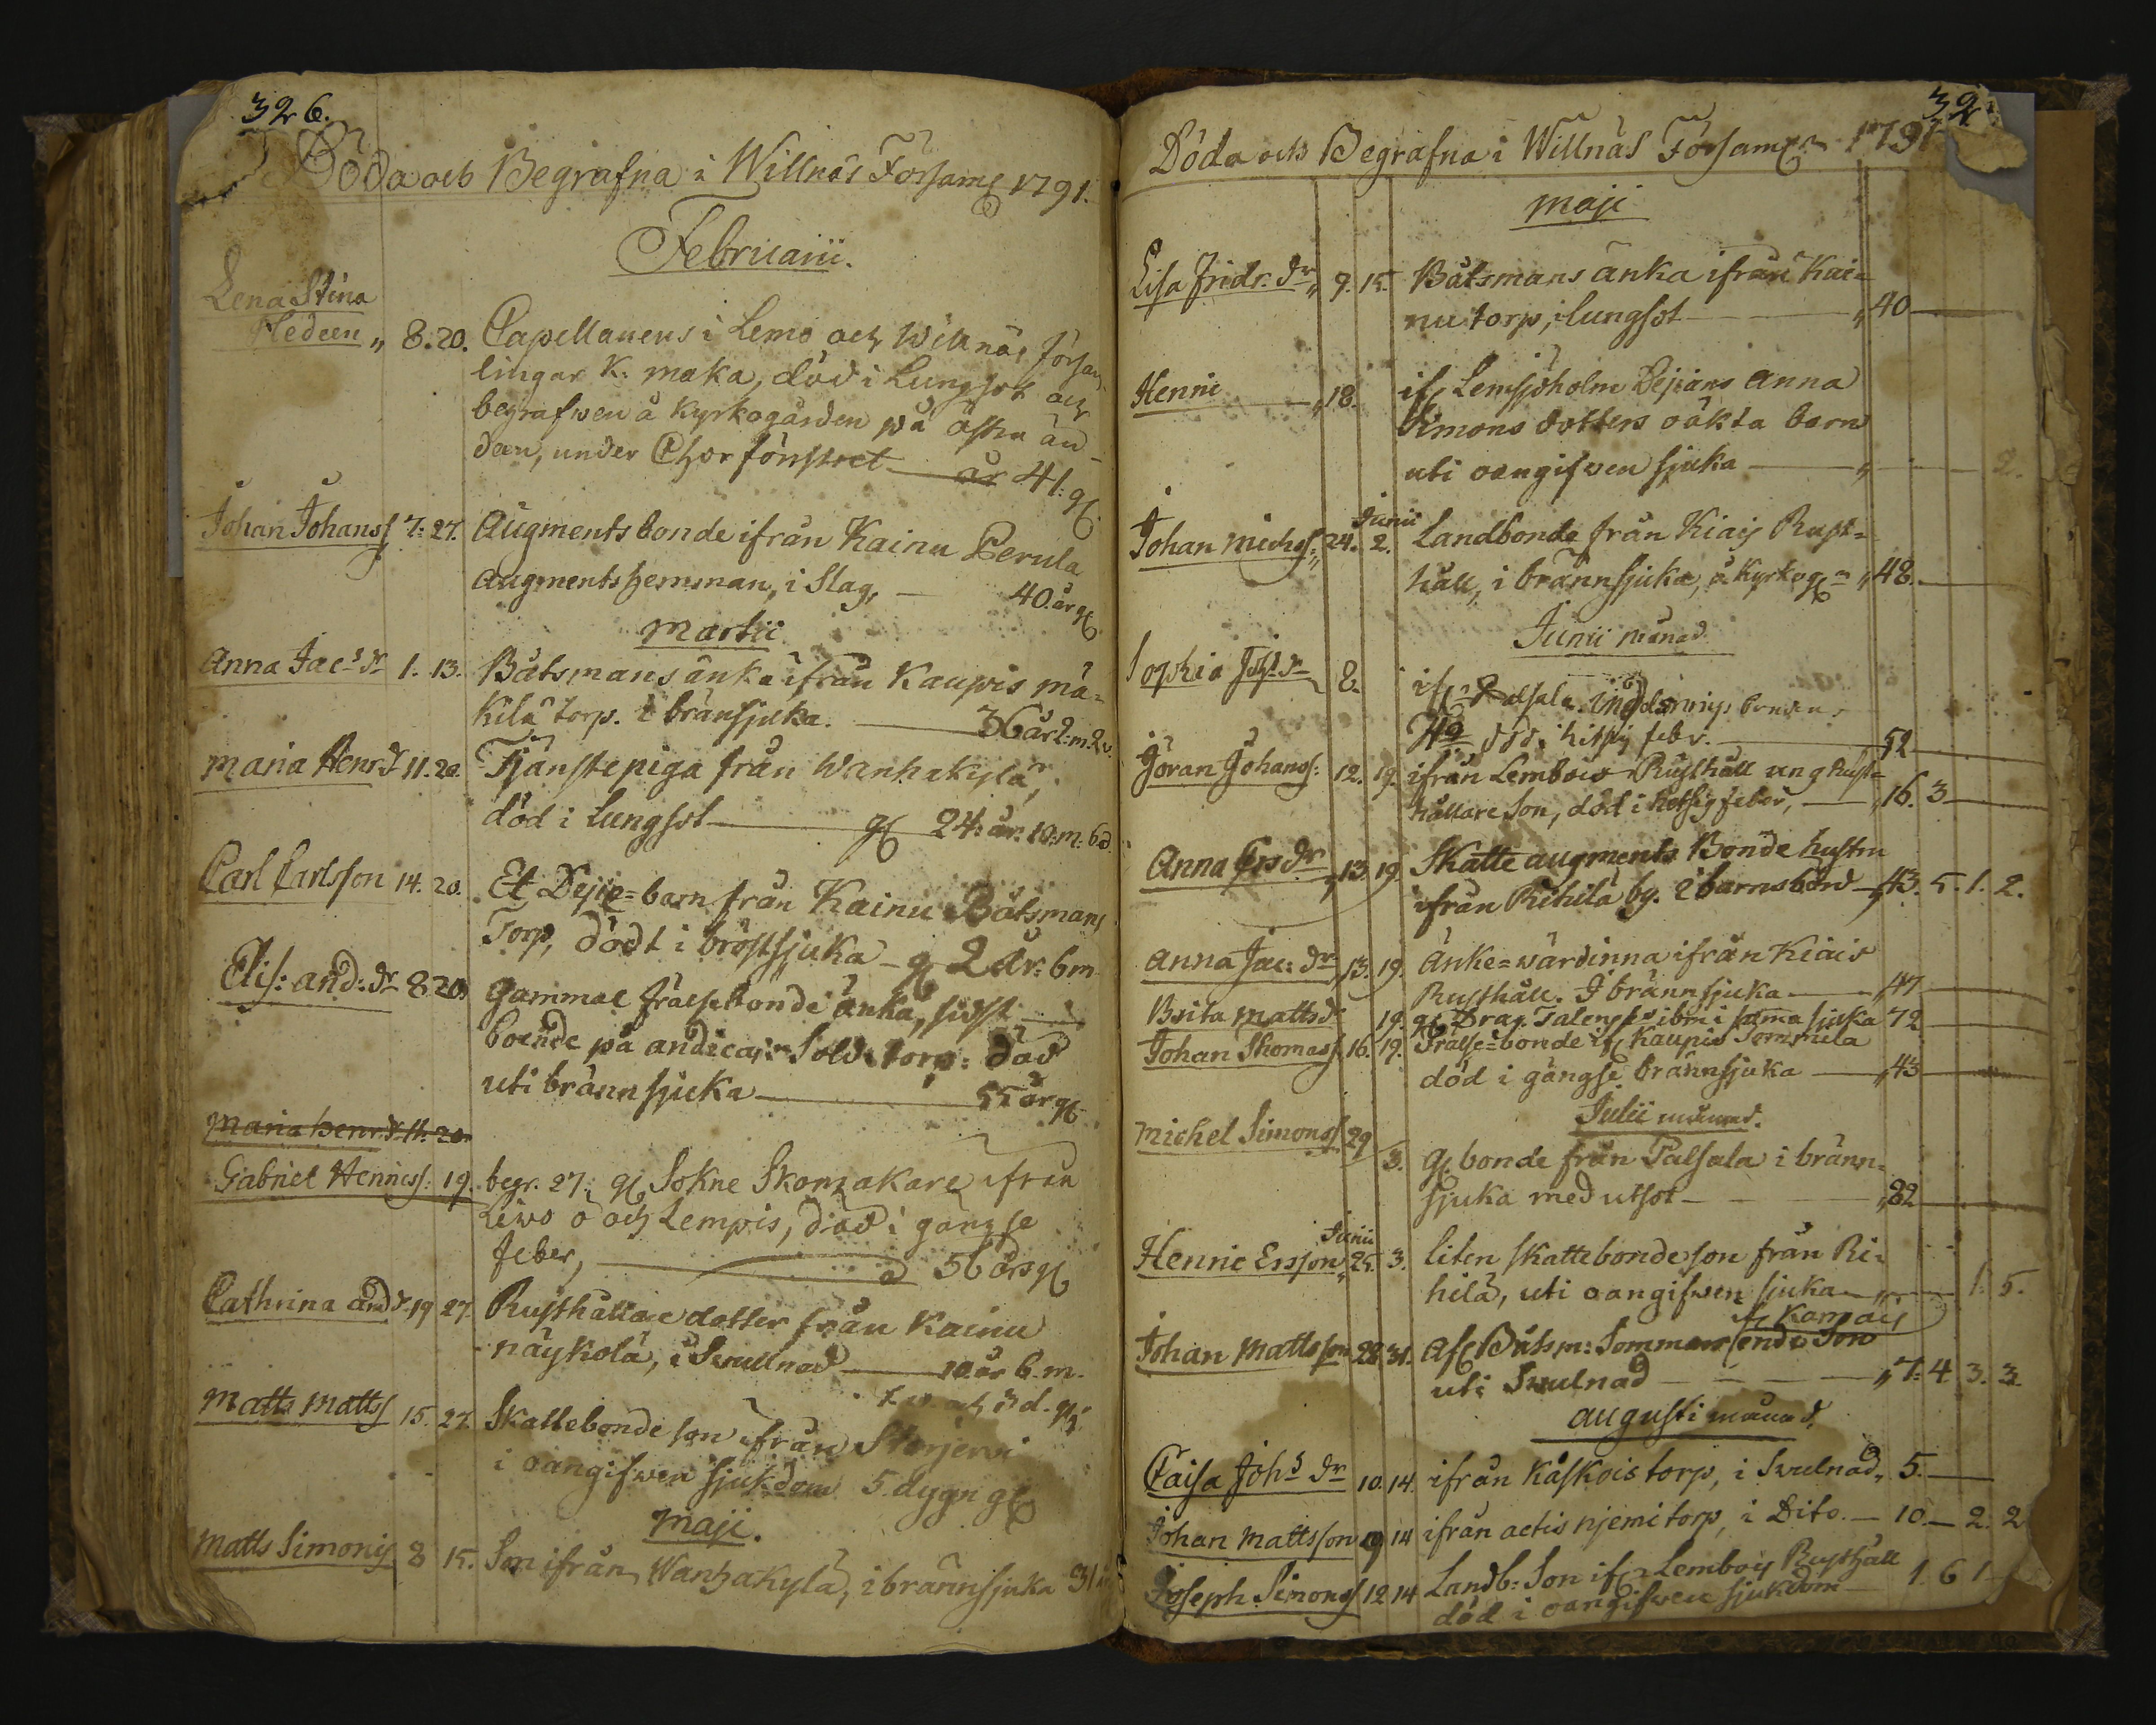 326.
Döda och Begrafna i Willnäs Församl 1791.
Februarii.
Lena Stina
Hedeen „ 8. 20. Capellanens i Lemo och Willnäs försam-
lingar K. maka, död i Lungsot och
begrafwen å Kyrkogården på östra än-
dan, under Chorfönstret år 41. gl.
Johan Johanss 7. 27. Augmentsbonde ifrån Kainu Perula
augmentshemman, i Slag, 40. år gl
Martii
Anna Jacs dr 1. 13. Båtsmans änka ifrån Kaupis mä-
kilä torp. i brännsjuka. 36 år 2. m. 2 v.
Maria Henr. dr 11. 20. Tjänstepiga från Wanhakylä,
död i Lungsot gl 24. år. 10. m. 6 d.
Carl Carlsson 14. 20. Et Dejje-barn från Kainu Båtsmans
Torp, dödt i bröstsjuka gl 2 år. 6 m
Elis: And: dr 8 20. Gammal frälsebonde änka, sidst
boende på andicais Sold. torp: död
uti brännsjuka 55 år gl
Maria Henr. dr 11. 20.
Gabriel Henricss: 19. begr. 27. gl Sokne Skomakare ifrån
Liwo ö och Lempis, död i gångse
feber, 56 års gl
Cathrina And. dr 19 27. Rusthållare dotter från Kainu
näykölä, i Swullnad 10 år 6. m.
1. v. och 3 d. gl.
Matts Mattss 15. 27. Skattebonde son ifrån Storjerwi
i oangifwen sjukdom 5 dygn gl
Maji.
Matts Simonss 8 15. Son ifrån Wanhakylä, i brännsjuka 31 år
32
Döda och Begrafna i Willnäs Församl 1791
Maji
Lisa Fridr. dr „ 9. 15. Båtsmans änka ifrån Kai-
nu torp, i lungsot „ 40
Henric „ 18. ifr Lemsjöholm Dejjans Anna
Simons dotters oäkta barn
uti oangifwen sjuka „ 2.
Junii
Johan Michss: „ 24. 2. Landbonde från Kiais Rust-
håll, i brännsjuka, å Kyrkog „ 48.
Junii månad
Sophia Joh. dr 8.
död i hitsig febr. 52
Göran Johanss: 12. 19. ifrån Lembois Rusthåll ung Rust-
hållare Son, död i hetsig feber, „ 16. 3
Anna Ers dr „ 13. 19. Skatte augments Bonde hustru
ifrån Rihilä by. i barnsbörd „ 43. 5. 1. 2.
Anna Jac: dr „ 13. 19. Änke-wärdinna ifrån Kiais
Rusthåll. I brännsjuka „ 47
Brita Matts dr 19. gl Drag. i samma sjuka 72
Johan Thomass 16. 19. Frälse-bonde ifr Kaupis Tommila
död i gångse brännsjuka „ 43
Julii månad.
Michel Simonss 29
3. gl. bonde från Palsala i bränn-
sjuka med utsot „ 82
Junii
Henric Ersson „ 25. 3. liten skattebondeson från Ri-
hilä, uti oangifwen sjuka „ 1. 5.
Johan Mattsson 28 31. Afl Båtsm: Sommars ende Son
uti Swulnad „ 7. 4 3. 3.
Augusti månad.
Caisa Johs dr 10. 14. ifrån Kåskois torp, i Swulnad „ 5.
Johan Mattsson 19 14 ifrån actis njemi torp, i Dito. 10. 2. 2
Joseph Simonss 12 14 Landb: Son ifr Lembois Rusthåll
död i oangifwen sjukdom 1 6 1